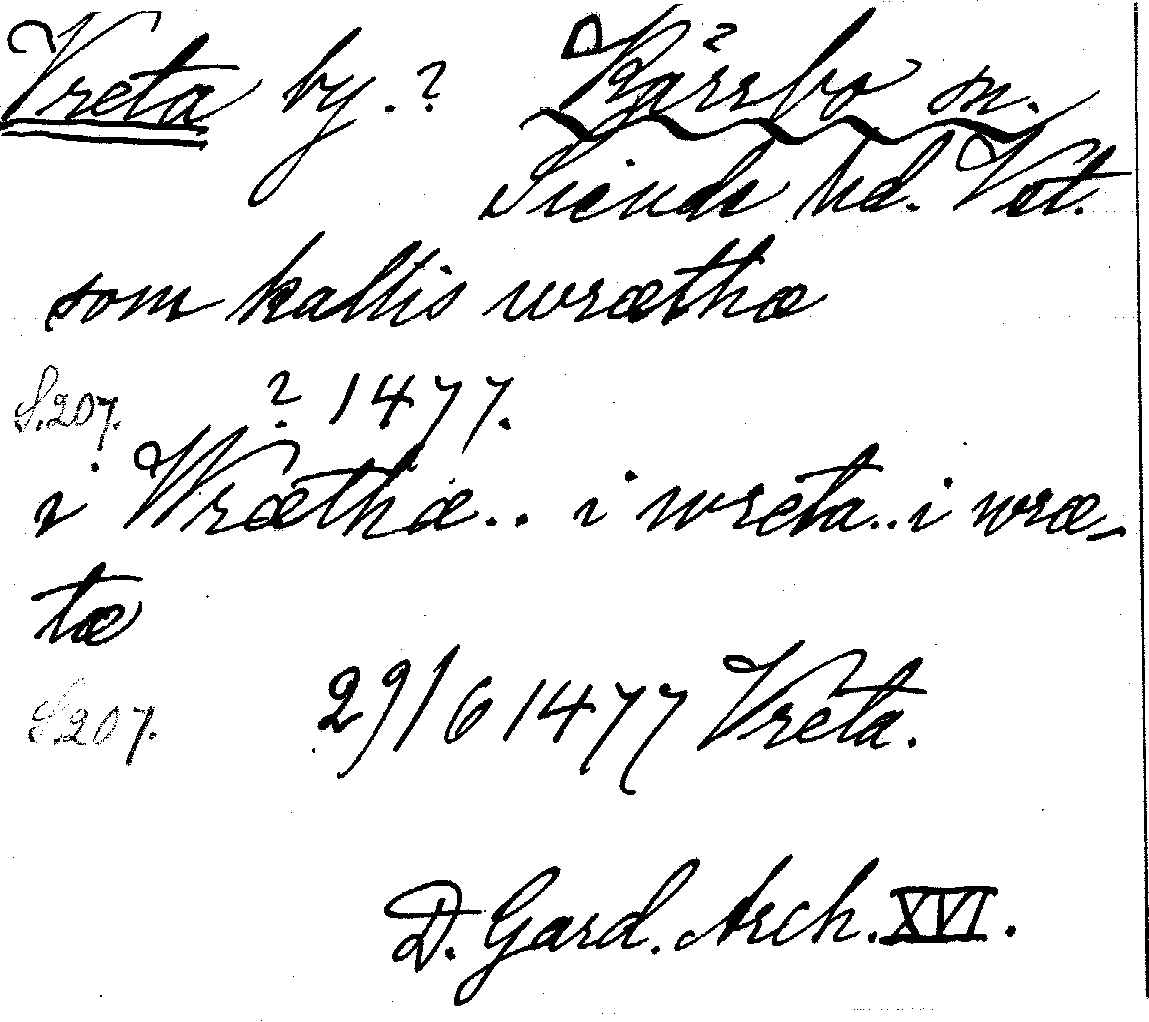 Vreta by.? Kärrbo sn.
Siende hd. Vst.
som kallis wræthæ
S. 207. ? 1477.
i Wræthæ.. i wreta.. i wræ-
tæ
S 207. 29/6 1477 Vreta.
D. Gard. Arch. XVI.